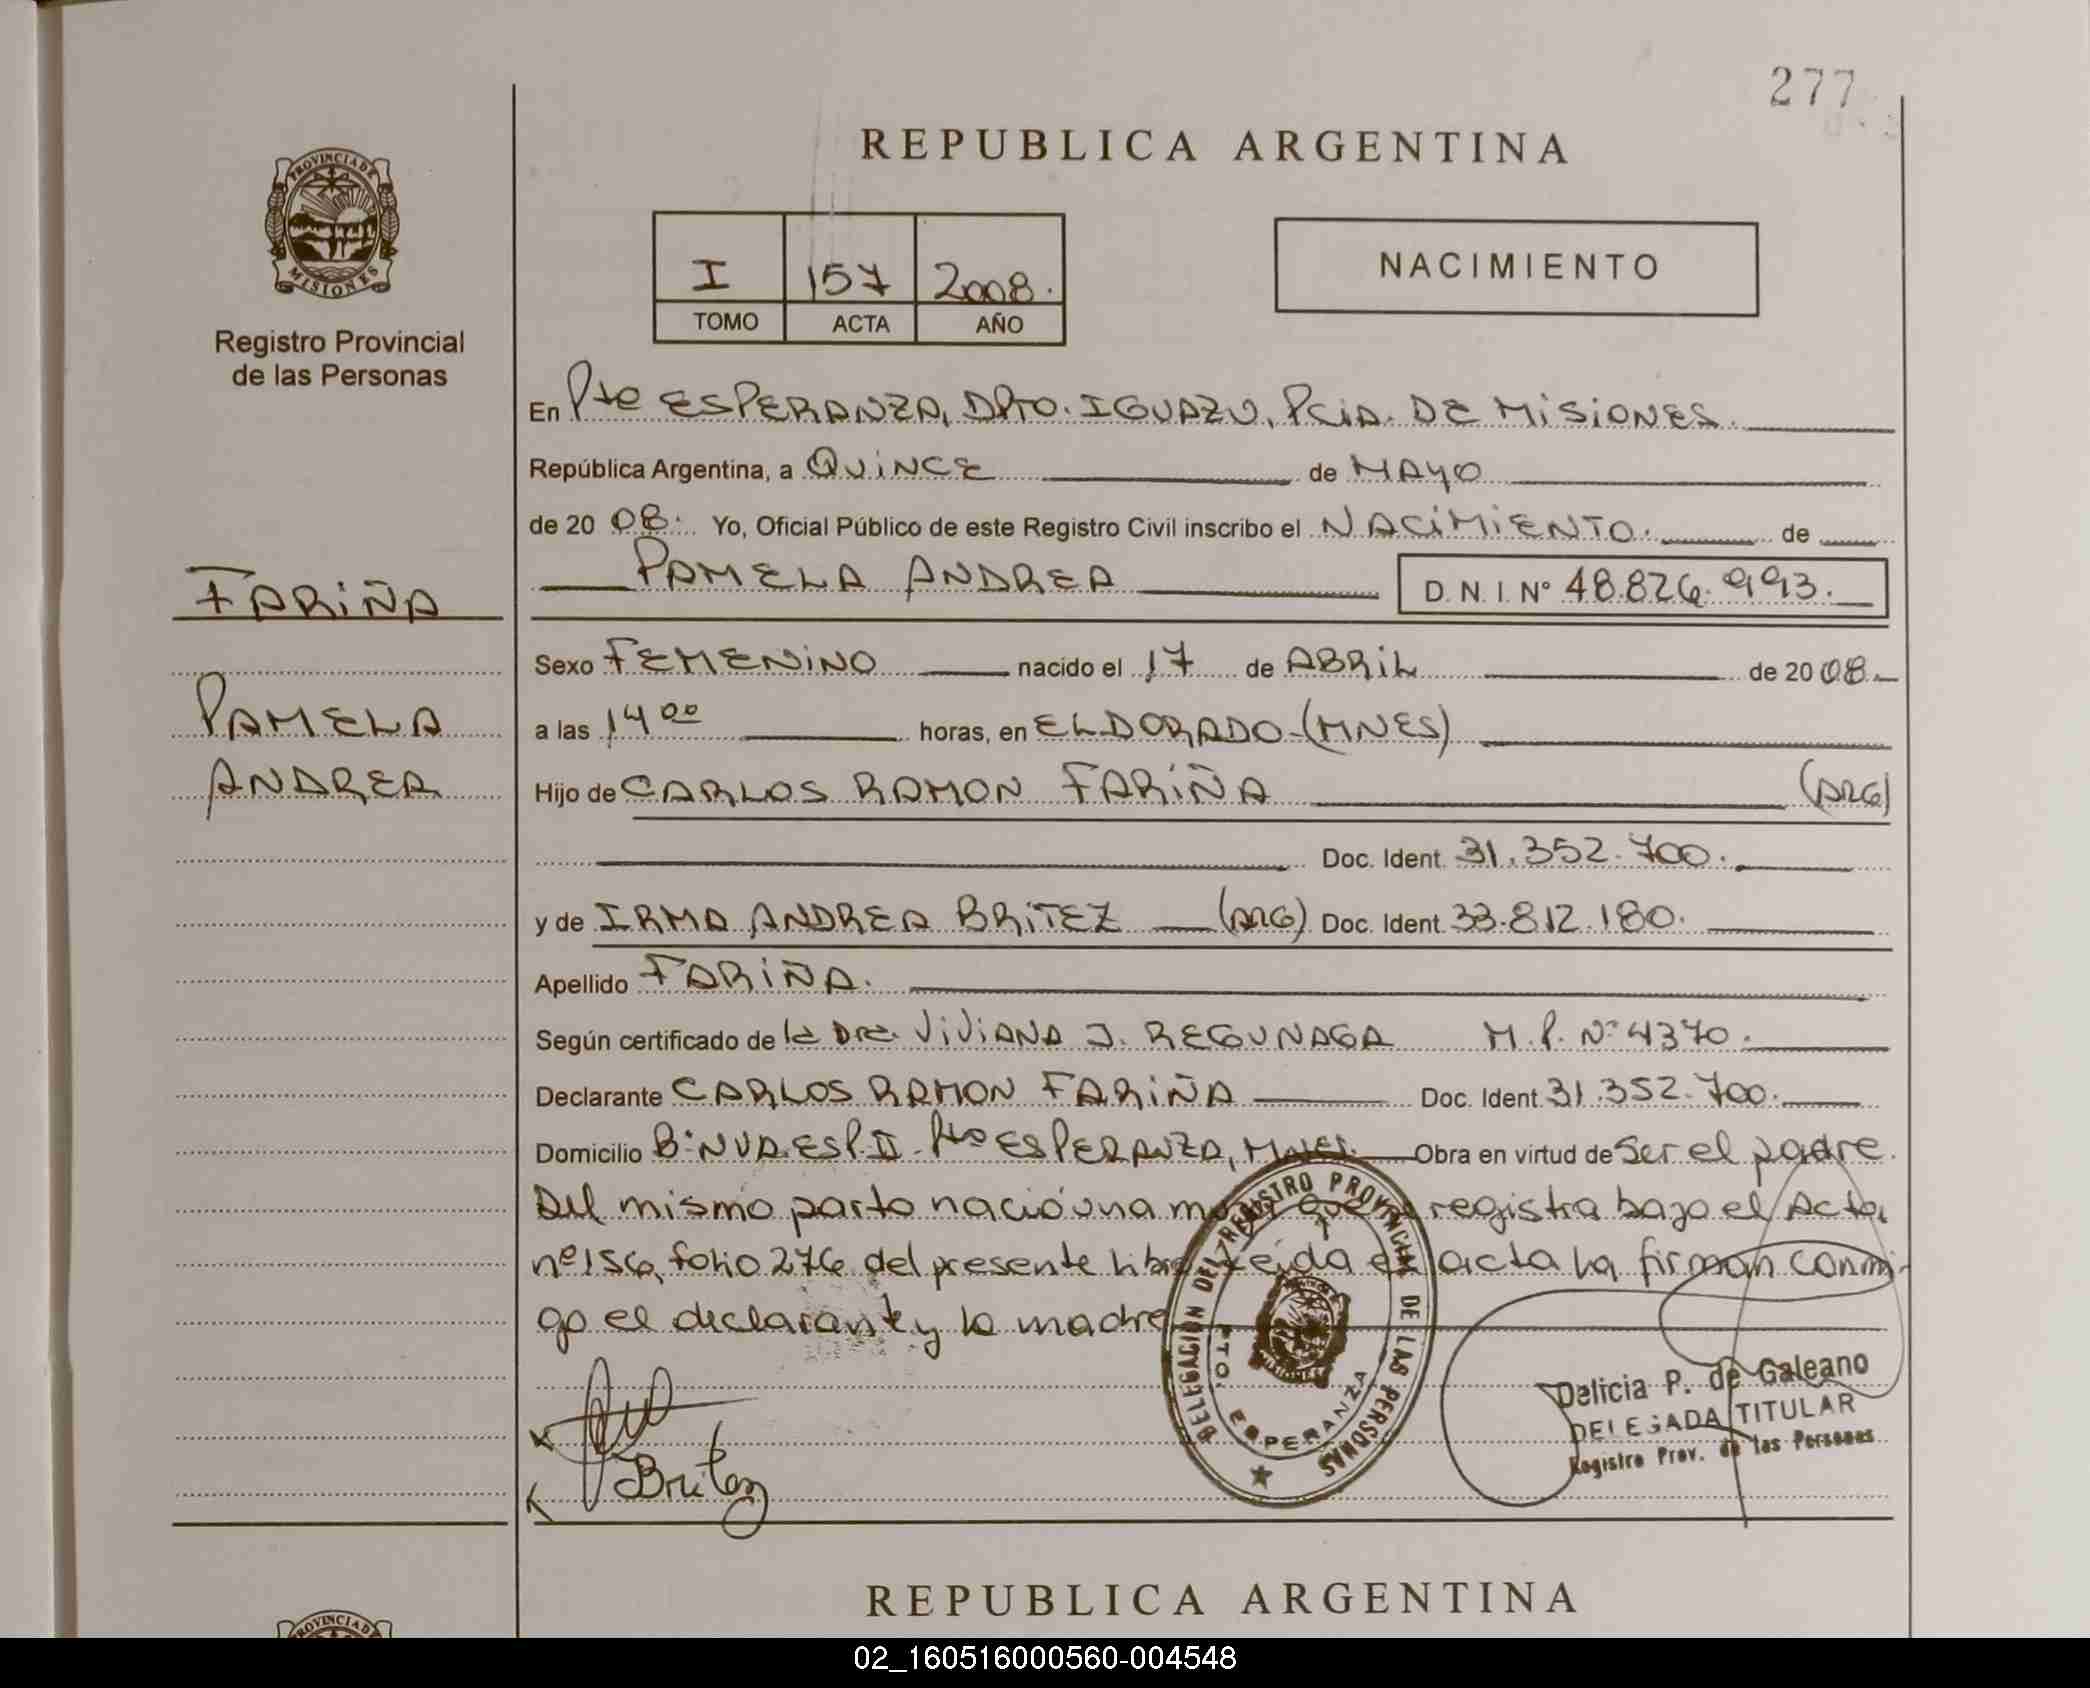 277
REPUBLICA ARGENTINA
PROVINCIA DE MISIONES
I 157 2008.
TOMO ACTA AÑO
NACIMIENTO
Registro Provincial
de las Personas
En Pto ESPERANZA, DPTO. IGUAZU, PCIA. DE MISIONES.
República Argentina, a QUINCE de MAYO
de 2008. Yo, Oficial Público de este Registro Civil inscribo el NACIMIENTO. de
PAMELA ANDREA D. N. I. N° 48.826.993.
FARIÑA
Sexo FEMENINO nacido el 17 de ABRIL de 2008.
PAMELA
a las 14 00 horas, en ELDORADO-(MNES)
ANDREA
Hijo de CARLOS RAMON FARIÑA (ARG)
Doc. Ident. 31.352.700.
y de IRMA ANDREA BRITEZ (ARG) Doc. Ident. 33.812.180.
Apellido FARIÑA.
Según certificado de la Dra. VIVIANA J. REGUNAGA M.P. N° 4370.
Declarante CARLOS RAMON FARIÑA Doc. Ident. 31.352.700.
Domicilio B° NVA. ESP. II - Pto ESPERANZA, MNES. Obra en virtud de ser el padre.
Del mismo parto nació una registra bajo el Acta
nº 156, folio 276 del presente libro Leída el acta la firman conmi-
go el declarante y la madre
Britez
DELEGACION DEL REGISTRO PROVINCIAL DE LAS PERSONAS
PTO. ESPERANZA
Delicia P. de Galeano
DELEGADA TITULAR
Registro Prov. de las Personas
REPUBLICA ARGENTINA
PROVINCIA DE
02_160516000560-004548